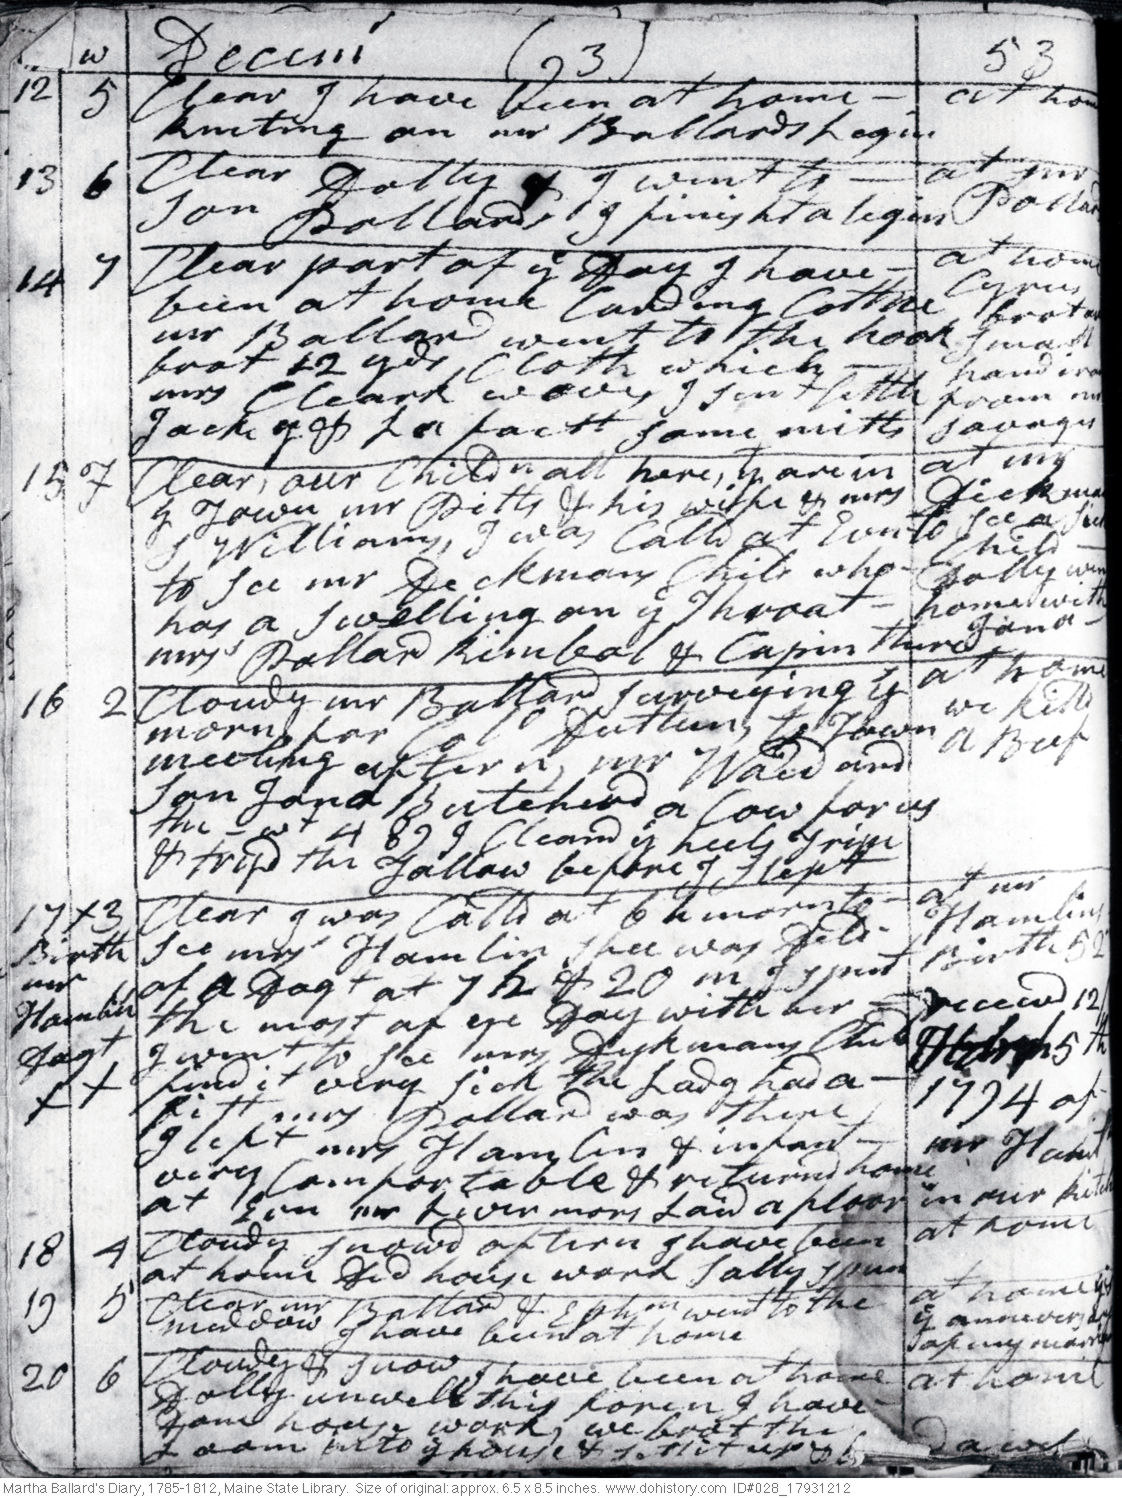 w Decem (93) 53
12 5 Clear I have been at home - at home
kniting on mr Ballards legin
13 6 Clear Dolly & I went to - at mr
son Pollards I finisht a legin Pollard
14 7 Clear part of ye Day I have - at home
been at home Carding Cotten Cyrus
mr Ballard went to the hook brot
brot 12 yds Cloth which - small
mrs Cleark wove, I sent handiron
Jack & La some mitts from mr
Savages
15 F Clear, our Childn all here, yt are in at mr
ye Town mr Pitts & his wife & mrs Dickman
Williams, I was Calld at Evn to see a sick
to see mr Deckmans Child who - Child -
has a swelling on ye Throat - Dolly went
mrs Pollard Kimbal & Capin there home with
Jona -
16 2 Cloudy mr Ballard surveying ye at home
morn for Col Dutten, to Town we killd
meeting aftern, mr Waid and a Beef
son Jona Butcherd a Cow for us
the - wt 482 I Cleand ye heels Tripe
& tryd the Tallow before I slept
17 x 3 Clear I was Calld at 6 h morn to - at mr
Birth see mrs Hamlin shee was Deld - Hamlins
mr of a Dagt at 7 h & 20 m I spent Birth 52
Hamlin the most of ye Day with her - receivd 12/
Dagt I went to see mrs Dykmans Child 5th
x x find it very sick the Lady had a - 1794 of
fitt mrs Pollard was there mr Hamlin
I left mrs Hamlin & infant - in our kitchen
very Comfortable & returnd home
at Evn mr Livermore Laid a floor
18 4 Cloudy snowd aftern I have been at home
at home Did house work Sally spun
19 5 Clear mr Ballard & Ephm went to the at home
meddow I have been at home ye anniversary
of my marriage
20 6 Cloudy & snow, I have been at home at home
Dolly unwell this foren I have
done house work, we brot the
Loom into ye house & set it up
Martha Ballard's Diary, 1785-1812, Maine State Library. Size of original: approx. 6.5 x 8.5 inches. www.dohistory.com ID#028_17931212